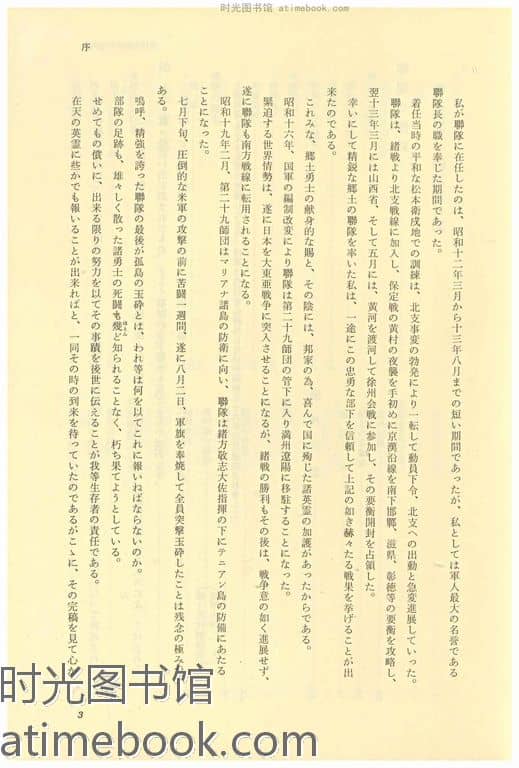 时光图书馆 - atimebook.com
序
私が聯隊に在任したのは、昭和十二年三月から十三年八月までの短い期間であったが、私としては軍人最大の名誉である
聯隊長の職を奉じた期間であった。
着任当時の平和な松本衛戌地での訓練は、北支事変の勃発により一転して動員下令、北支への出動と急変進展していった。
聯隊は、緒戦より北支戦線に加入し、保定戦の黄村の夜襲を手初めに京漢沿線を南下邯鄲、滋県、彰徳等の要衝を攻略し、
翌十三年三月には山西省、そして五月には、黄河を渡河して徐州会戦に参加し、その要衝開封を占領した。
幸いにして精鋭な郷土の聯隊を率いた私は、一途にこの忠勇な部下を信頼して上記の如き赫々たる戦果を挙げることが出
来たのである。
これみな、郷土勇士の献身的な賜と、その陰には、邦家の為、喜んで国に殉じた諸英霊の加護があったからである。
昭和十六年、国軍の編制改変により聯隊は第二十九師団の管下に入り満州遼陽に移駐することになった。
緊迫する世界情勢は、遂に日本を大東亜戦争に突入させることになるが、緒戦の勝利もその後は、戦争意の如く進展せず、
遂に聯隊も南方戦線に転用されることになる。
昭和十九年二月、第二十九師団はマリアナ諸島の防衛に向い、聯隊は緒方敬志大佐指揮の下にテニアン島の防備にあたる
ことになった。
七月下旬、圧倒的な米軍の攻撃の前に苦闘一週間、遂に八月二日、軍旗を奉焼して全員突撃玉砕したことは残念の極み
ある。
嗚呼、精強を誇った聯隊の最後が孤島の玉砕とは、われ等は何を以てこれに報いねばならないのか。
部隊の足跡も、雄々しく散った諸勇士の死闘も幾ど知られることなく、朽ち果てようとしている。
せめてもの償いに、出来る限りの努力を以てその事蹟を後世に伝えることが我等生存者の責任である。
在天の英霊に些かでも報いることが出来ればと、一同その時の到来を待っていたのであるがこゝに、その完稿を見て心
3
时光图书馆
atimebook.com